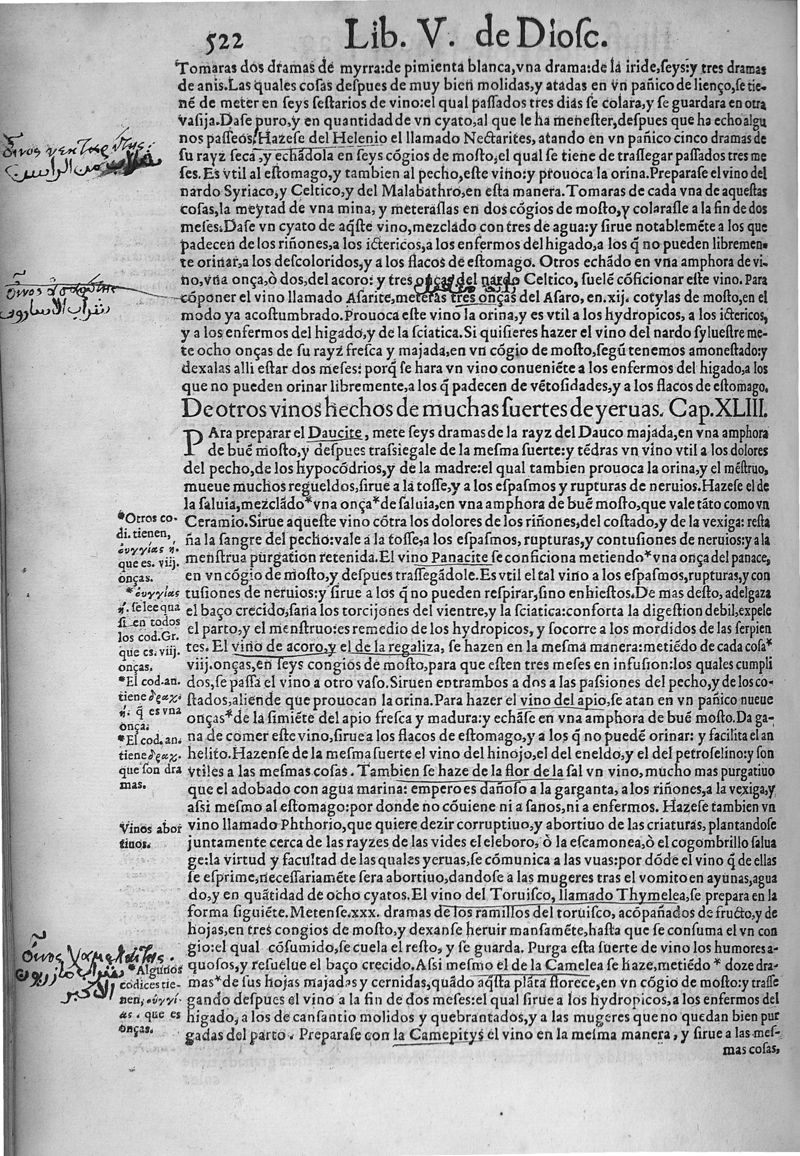 522 Lib. V. de Diosc.
Tomaras dos dramas de myrra:de pimienta blanca,vna drama:de la iride,seys:y tres dramas
de anis.Las quales cosas despues de muy bien molidas,y atadas en vn pañico de lienço,se tie-
né de meter en seys sestarios de vino:el qual passados tres dias se colara,y se guardara en otra
vasija.Dase puro,y en quantidad de vn cyato,al que le ha menester,despues que ha echo algu
nos passeos.Hazese del Helenio el llamado Nectarites, atando en vn pañico cinco dramas de
su rayz seca,y echádola en seys cógios de mosto,el qual se tiene de trassegar passados tres me
ses.Es vtil al estomago,y tambien al pecho,este vino:y prouoca la orina.Preparase el vino del
nardo Syriaco,y Celtico,y del Malabathro,en esta manera.Tomaras de cada vna de aquestas
cosas,la meytad de vna mina, y meteraslas en dos cógios de mosto,y colaraslle a la fin de dos
meses.Dase vn cyato de aq̃ste vino,mezclado con tres de agua:y sirue notableméte a los que
padecen de los riñones,a los ictericos,a los enfermos del higado,a los q̃ no pueden libremen-
te orinar,a los descoloridos,y a los flacos de estomago. Otros echádo en vna amphora de vi-
no,vna onça,ò dos,del acoro: y tres onças del nardo Celtico, suelé cóficionar este vino. Para
cóponer el vino llamado Asarite,meteras tres onças del Asaro, en.xij. cotylas de mosto,en el
modo ya acostumbrado.Prouoca este vino la orina,y es vtil a los hydropicos, a los ictericos,
y a los enfermos del higado,y de la sciatica.Si quisieres hazer el vino del nardo syluestre me-
te ocho onças de su rayz fresca y majada,en vn cógio de mosto,segũ tenemos amonestado:y
dexalas alli estar dos meses: porq̃ se hara vn vino conueniéte a los enfermos del higado,a los
que no pueden orinar libremente,a los q̃ padecen de vétosidades,y a los flacos de estomago.
De otros vinos hechos de muchas suertes de yeruas. Cap.XLIII.
PAra preparar el Daucite, mete seys dramas de la rayz del Dauco majada,en vna amphora
de bué mosto,y despues trassiegale de la mesma suerte:y tédras vn vino vtil a los dolores
del pecho,de los hypocódrios,y de la madre:el qual tambien prouoca la orina,y el méstruo,
mueue muchos regueldos,sirue a la tosse,y a los espasmos y rupturas de neruios.Hazese el de
la saluia,mezcládo*vna onça*de saluia,en vna amphora de bué mosto,que vale táto como vn
Ceramio.Sirue aqueste vino cótra los dolores de los riñones,del costado,y de la vexiga: resta
ña la sangre del pecho:vale a la tosse,a los espasmos, rupturas,y contusiones de neruios:y a la
menstrua purgation retenida.El vino Panacite se conficiona metiendo*vna onça del panace,
en vn cógio de mosto,y despues trassegádole.Es vtil el tal vino a los espasmos,rupturas,y con
tusiones de neruios:y sirue a los q̃ no pueden respirar,sino enhiestos.De mas desto,adelgaza
el baço crecido,sana los torcijones del vientre,y la sciatica:conforta la digestion debil,expele
el parto,y el menstruo:es remedio de los hydropicos, y socorre a los mordidos de las serpien
tes. El vino de acoro,y el de la regaliza, se hazen en la mesma manera:metiédo de cada cosa*
viij.onças,en seys congios de mosto,para que esten tres meses en infusion:los quales cumpli
dos,se passa el vino a otro vaso.Siruen entrambos a dos a las passiones del pecho,y de los co-
stados,aliende que prouocan la orina.Para hazer el vino del apio,se atan en vn pañico nueue
onças*de la simiéte del apio fresca y madura:y echáse en vna amphora de bué mosto.Da ga-
na de comer este vino,sirue a los flacos de estomago,y a los q̃ no puedé orinar: y facilita el an
helito.Hazense de la mesma suerte el vino del hinojo,el del eneldo,y el del petroselino:y son
vtiles a las mesmas cosas. Tambien se haze de la flor de la sal vn vino, mucho mas purgatiuo
que el adobado con agua marina: empero es dañoso a la garganta, a los riñones,a la vexiga,y
assi mesmo al estomago:por donde no cóuiene ni a sanos,ni a enfermos. Hazese tambien vn
vino llamado Phthorio,que quiere dezir corruptiuo,y abortiuo de las criaturas, plantandose
juntamente cerca de las rayzes de las vides el eleboro, ò la escamonea,ò el cogombrillo salua
ge:la virtud y facultad de las quales yeruas,se cómunica a las vuas:por dóde el vino q̃ de ellas
se esprime,necessariaméte sera abortiuo,dandose a las mugeres tras el vomito en ayunas,agua
do,y en quátidad de ocho cyatos.El vino del Toruisco, llamado Thymelea,se prepara en la
forma siguiéte.Metense.xxx. dramas de los ramillos del toruisco, acópañados de fructo,y de
hojas,en tres congios de mosto,y dexanse heruir mansaméte,hasta que se consuma el vn con
gio:el qual cósumido,se cuela el resto, y se guarda. Purga esta suerte de vino los humores a-
quosos,y resuelue el baço crecido.Assi mesmo el de la Camelea se haze,metiédo * doze dra-
mas*de sus hojas majadas y cernidas,quádo aq̃sta pláta florece,en vn cógio de mosto:y trasse
gando despues el vino a la fin de dos meses:el qual sirue a los hydropicos,a los enfermos del
higado,a los de cansantio molidos y quebrantados,y a las mugeres que no quedan bien pur
gadas del parto. Preparase con la Camepitys el vino en la mesma manera, y sirue a las mes-
mas cosas,
*Otros co-
di. tienen,
ουγγίας η.
que es. viij.
onças.
*ουγγίας
η. se lee qua
si en todos
los cod.Gr.
que es. viij.
onças.
*El cod.an.
tiene δραχ.
η. q̃ es vna
onça.
*El cod. an.
tiene δραχ.
que son dra
mas.
Vinos abor
tinos.
*Algunos
codices tie-
nen, ουγγί-
ας. que es
onças.
οἶνος νεκταρίτης.
من الراسن
οἶνος ἀσαρίτης
شراب الاسارون
οἶνος χαμελαίτης.
شراب مازريون